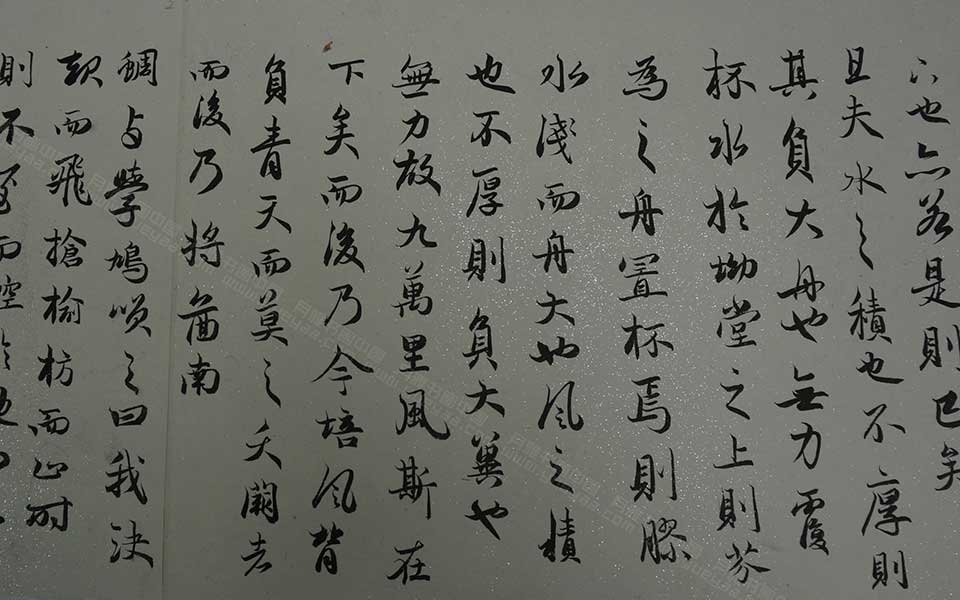 下也亦若是則已矣
且夫水之積也不厚則
其負大舟也無力覆
杯水於坳堂之上則芥
為之舟置杯焉則膠
水淺而舟大也風之積
也不厚則負大翼也
無力故九萬里風斯在
下矣而後乃今培風背
負青天而莫之夭閼者
而後乃將啚南
蜩与學鳩咲之曰我決
起而飛搶榆枋而止时
則不至而控於地